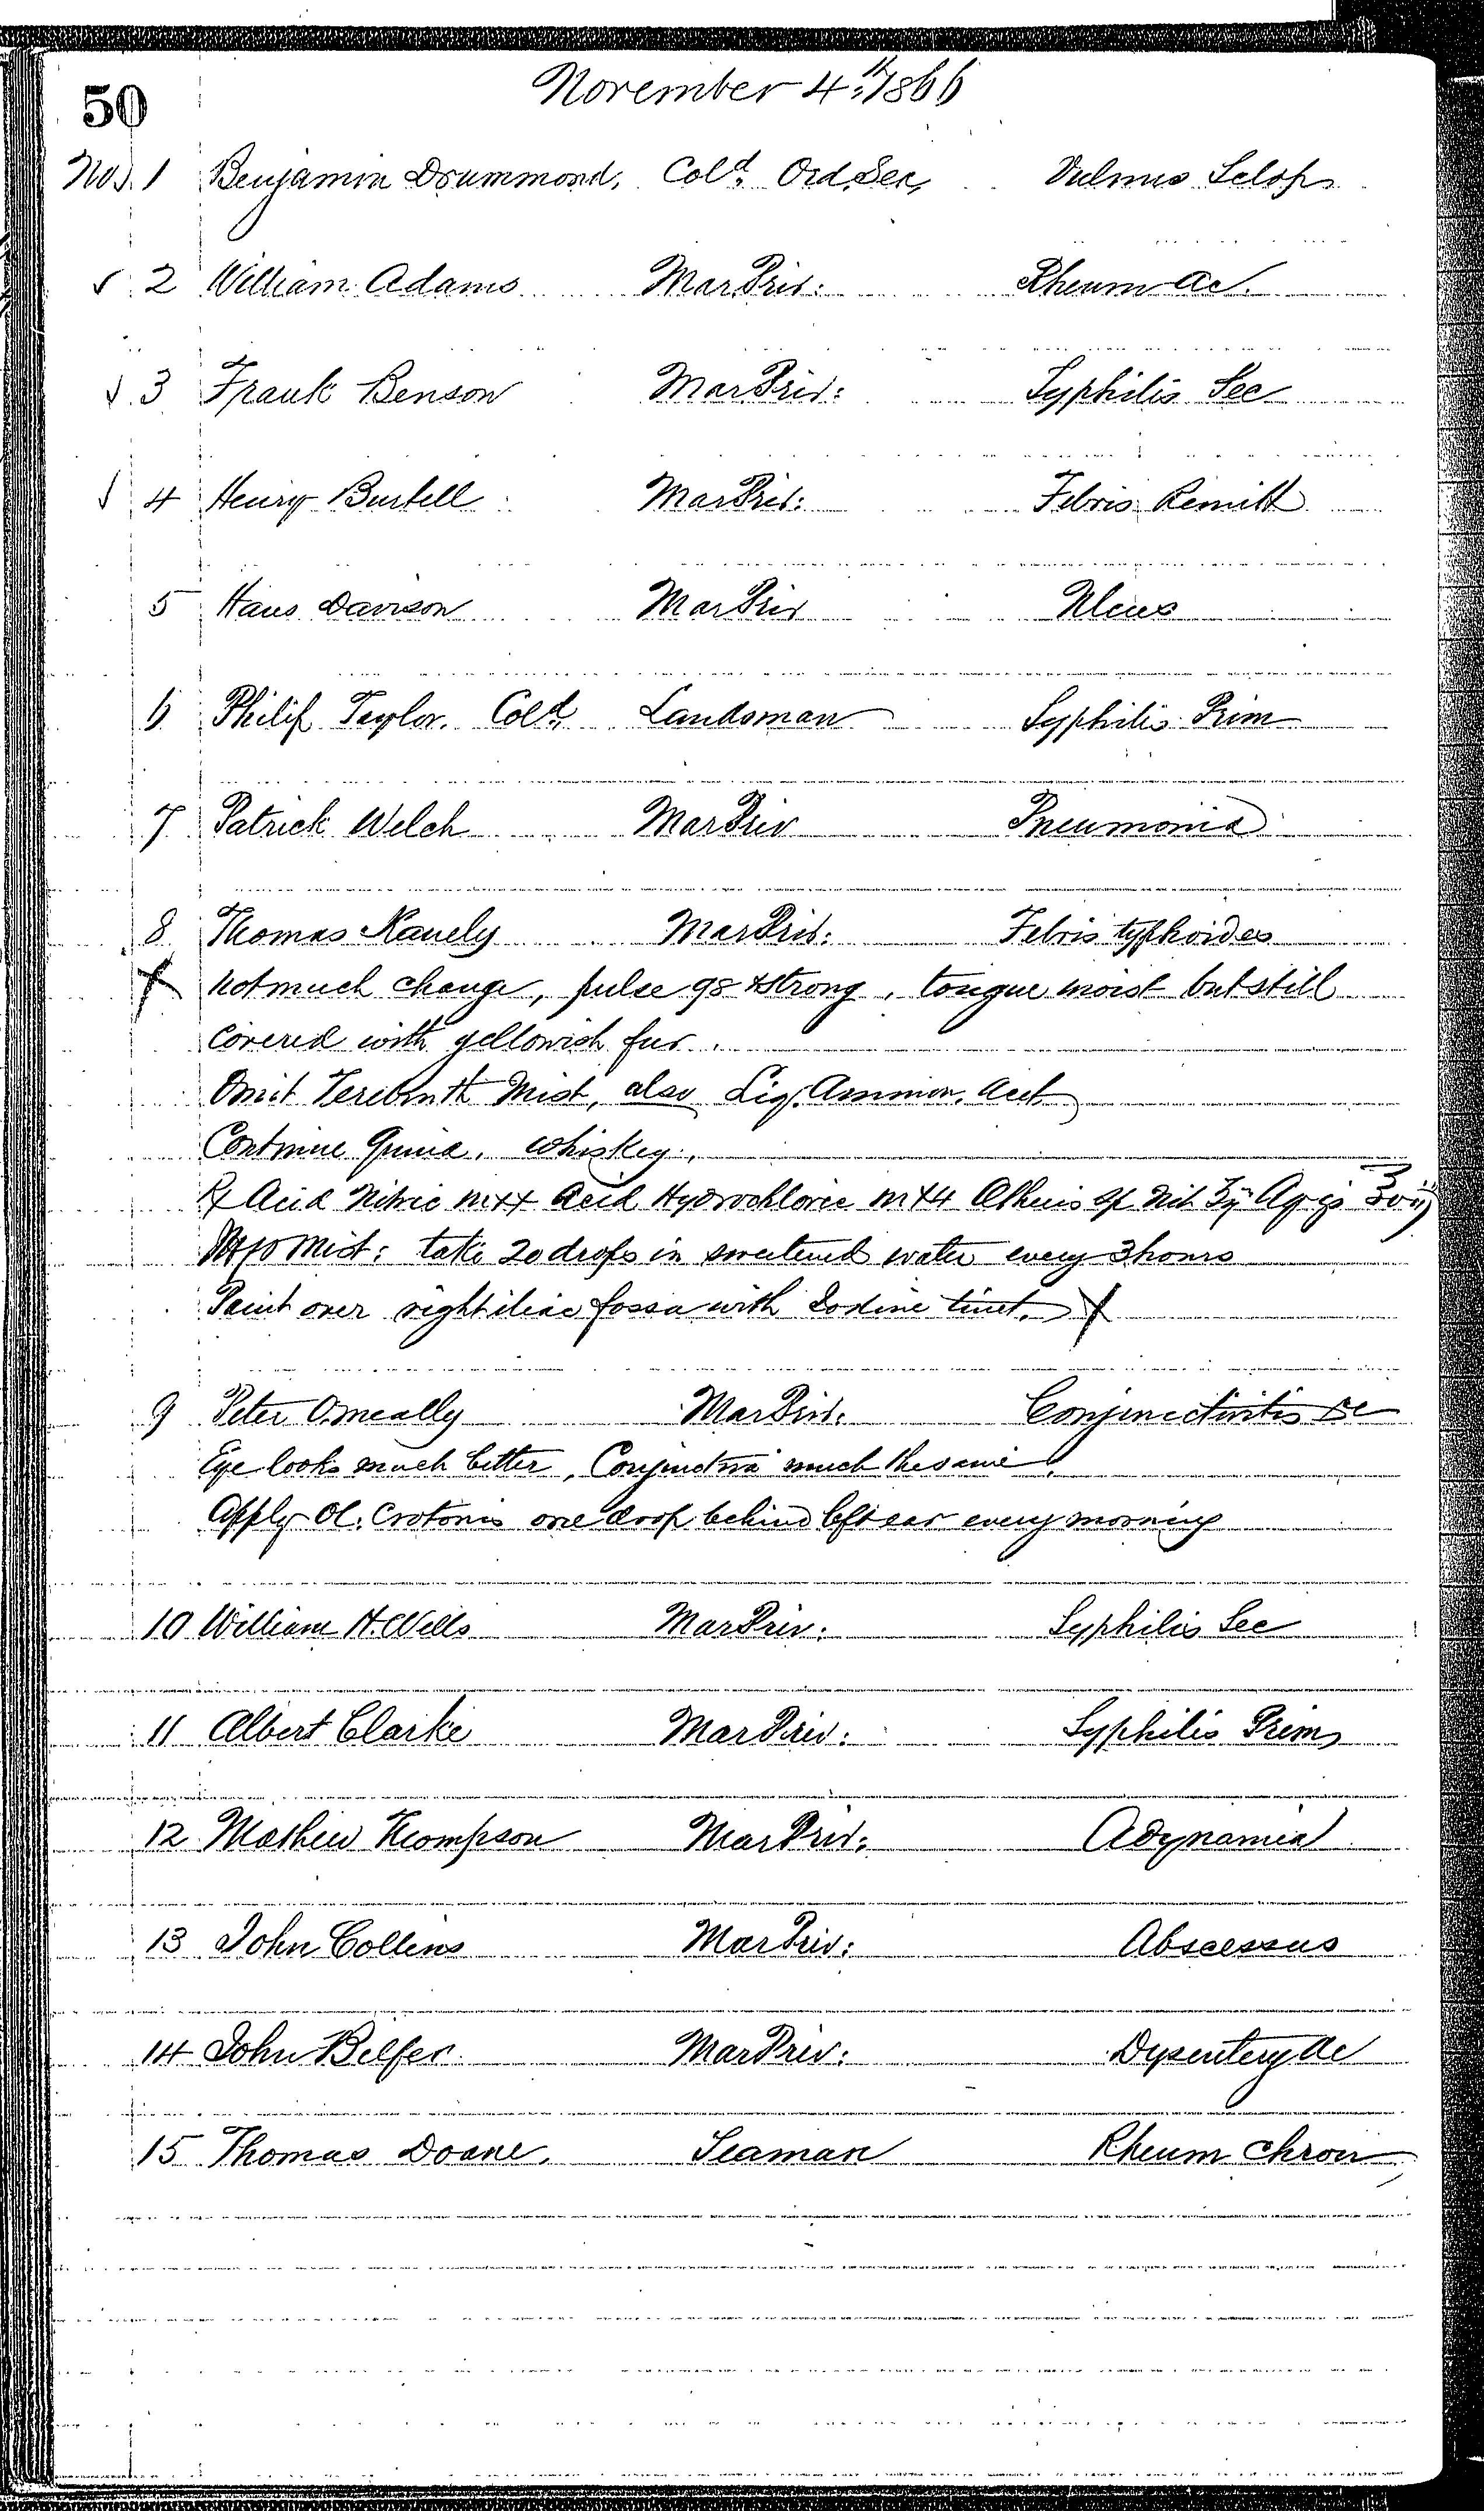 50
November 4th 1866
No. 1 Benjamin Drummond, Cold. Ord. Sea, Vulnus Sclop
2 William Adams Mar Priv: Rheum Ac.
3 Frank Benson Mar Priv: Syphilis Sec
4 Henry Burtell Mar Priv: Febris Remitt
5 Hans Davison Mar Priv Ulcus
6 Philip Taylor. Cold. Landsman Syphilis Prim
7 Patrick Welch Mar Priv Pneumonia
8 Thomas Navely Mar Priv: Febris typhoides
not much change, pulse 98 & strong, tongue moist but still
covered with yellowish fur.
Omit Terebinth Mist, also Liq. Ammon. Acet
Continue Quinia. whiskey.
℞ Acid Nitric mxx Acid Hydrochloric mx4 Ætheris Sp Nit ʒij Aq
Mist: take 20 drops in sweetened water every 3 hours
Paint over right iliac fossa with Iodine tinct.
9 Peter Omeally Mar Priv. Conjunctivitis Ac
Eye looks much better, Conjunctiva much the same.
Apply Ol. Crotonis one drop behind left ear every morning
10 William H. Wells Mar Priv: Syphilis Sec
11 Albert Clarke Mar Priv: Syphilis Prim
12 Mathew Thompson Mar Priv: Adynamia
13 John Collins Mar Priv: Abscessus
14 John Belfer Mar Priv: Dysentery Ac
15 Thomas Doane, Seaman Rheum Chron